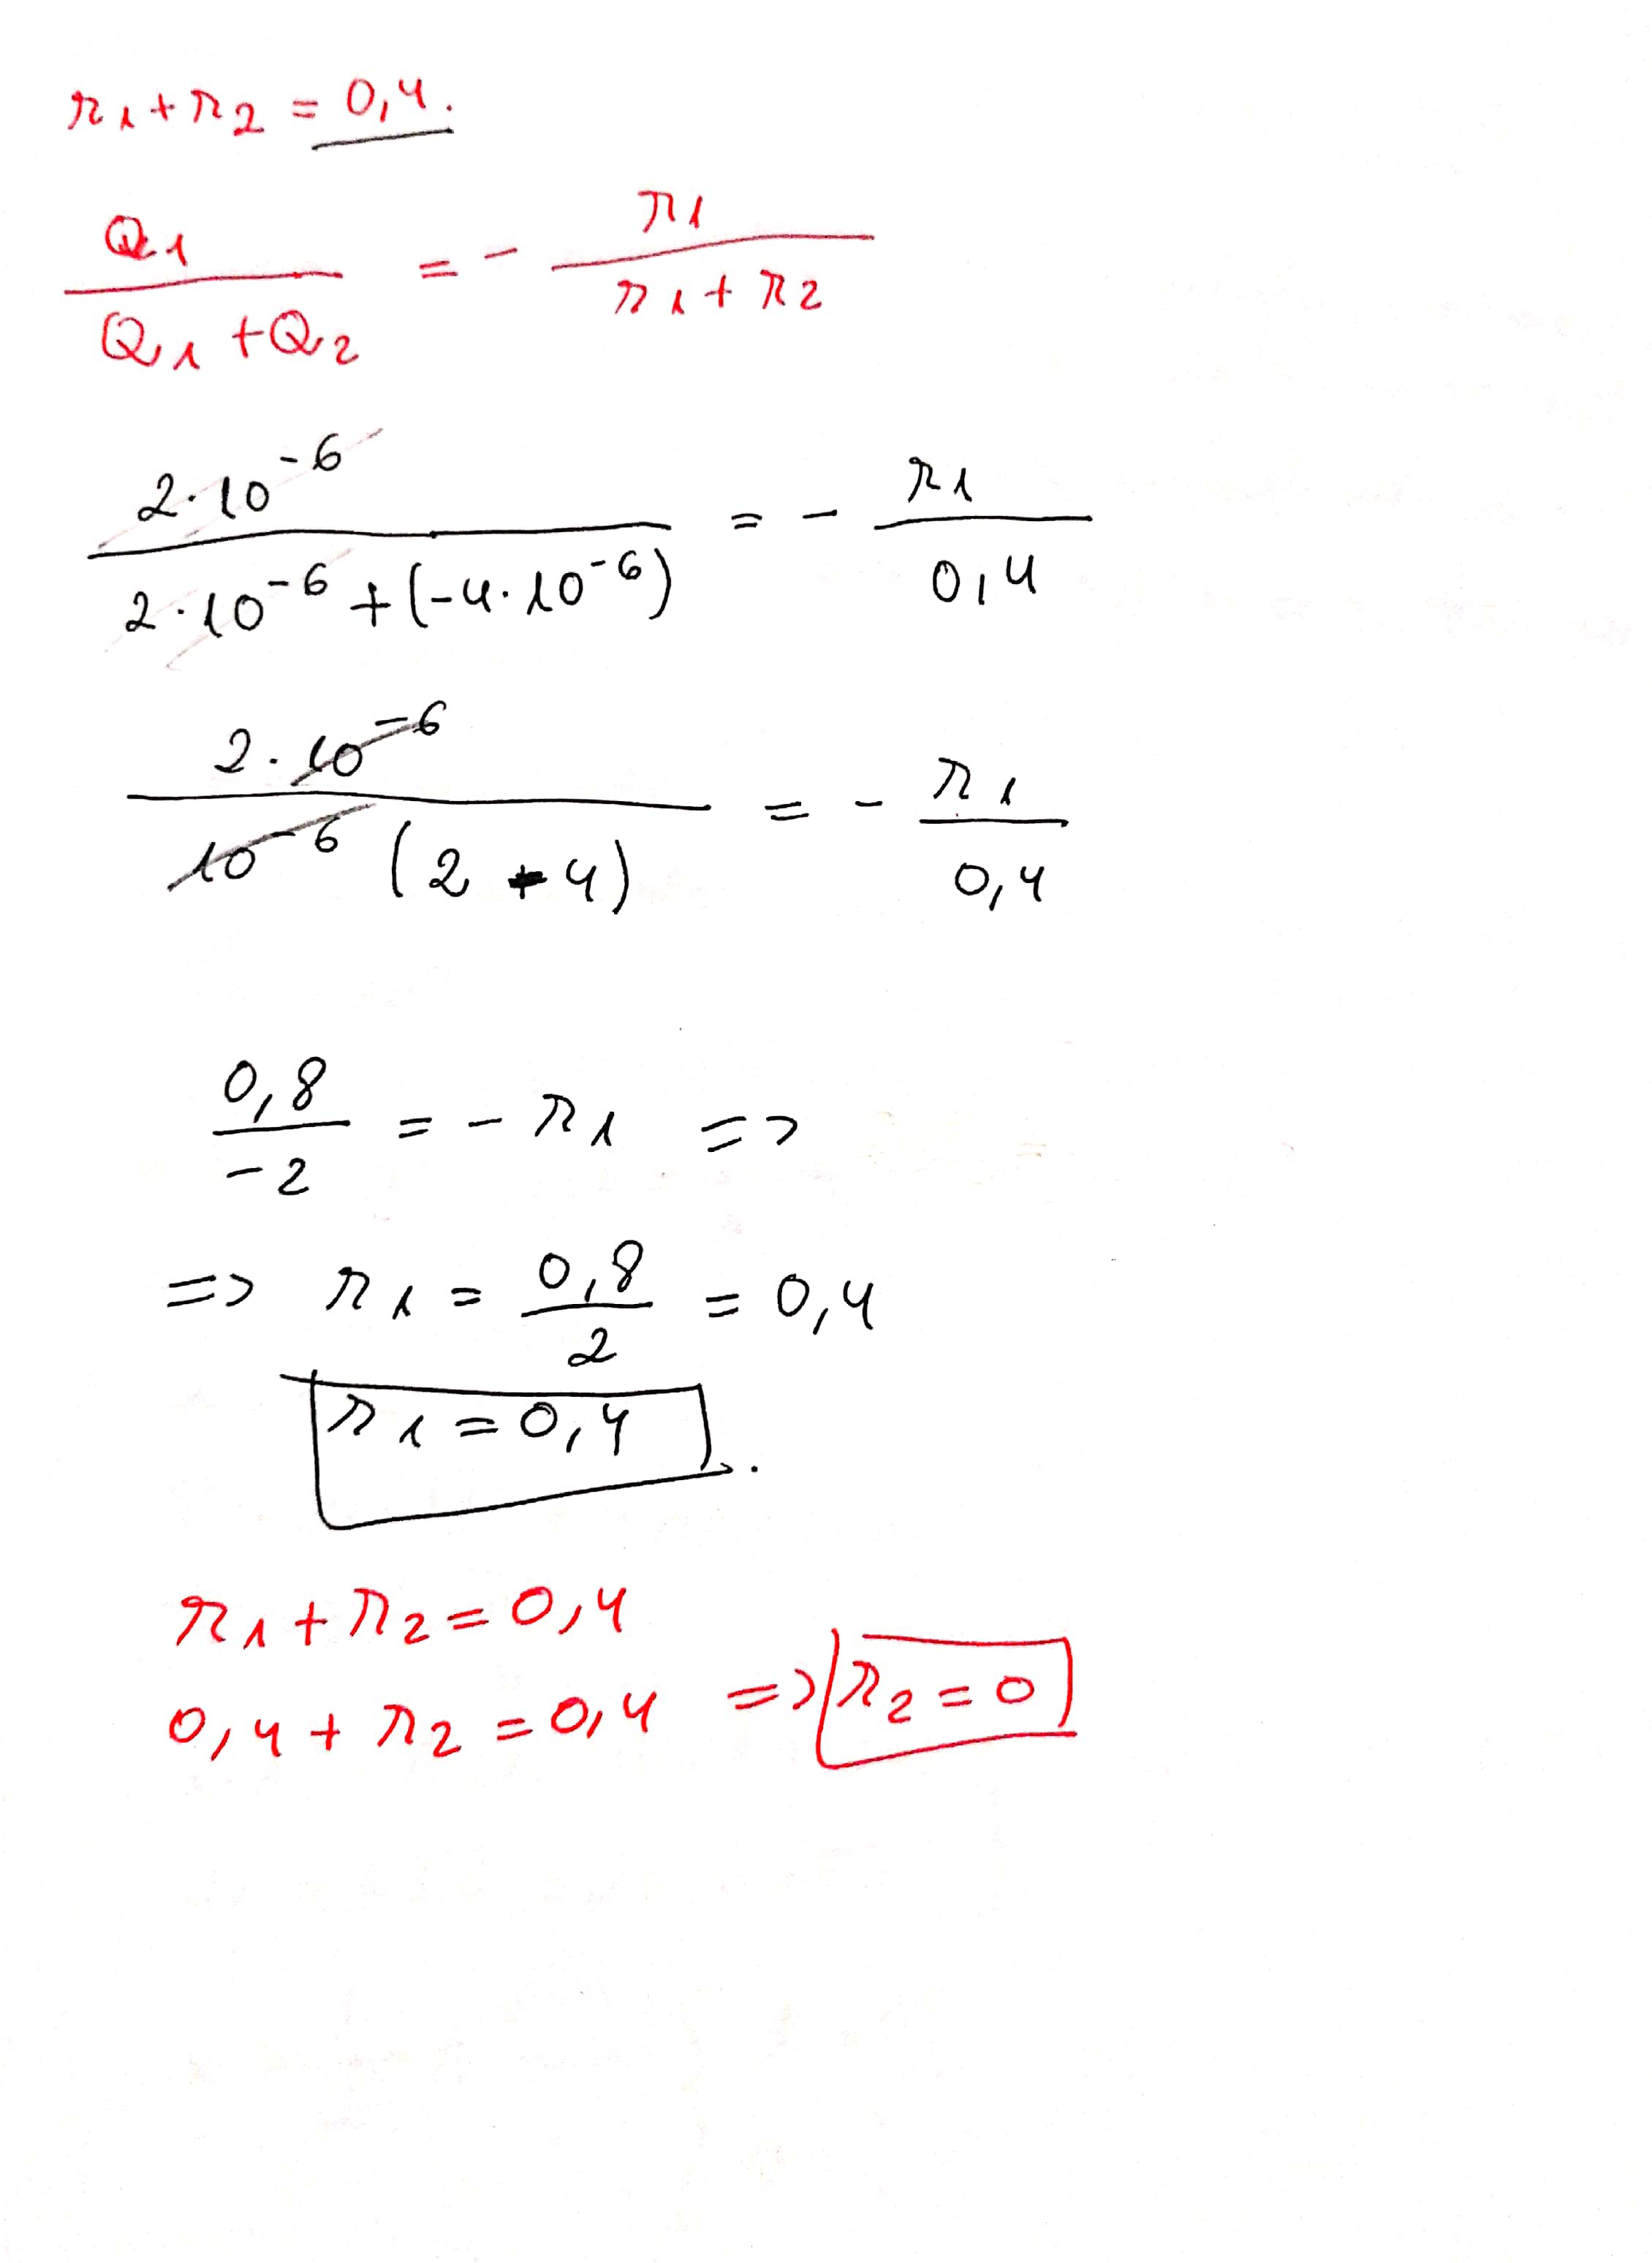 r1 + r2 = 0,4.
Q1 / (Q1 + Q2) = - r1 / (r1 + r2)
2·10^-6 / (2·10^-6 + (-4·10^-6)) = - r1 / 0,4
2·10^-6 / (10^-6 (2 - 4)) = - r1 / 0,4
0,8 / -2 = - r1 =>
=> r1 = 0,8 / 2 = 0,4
r1 = 0,4.
r1 + r2 = 0,4
0,4 + r2 = 0,4 => r2 = 0